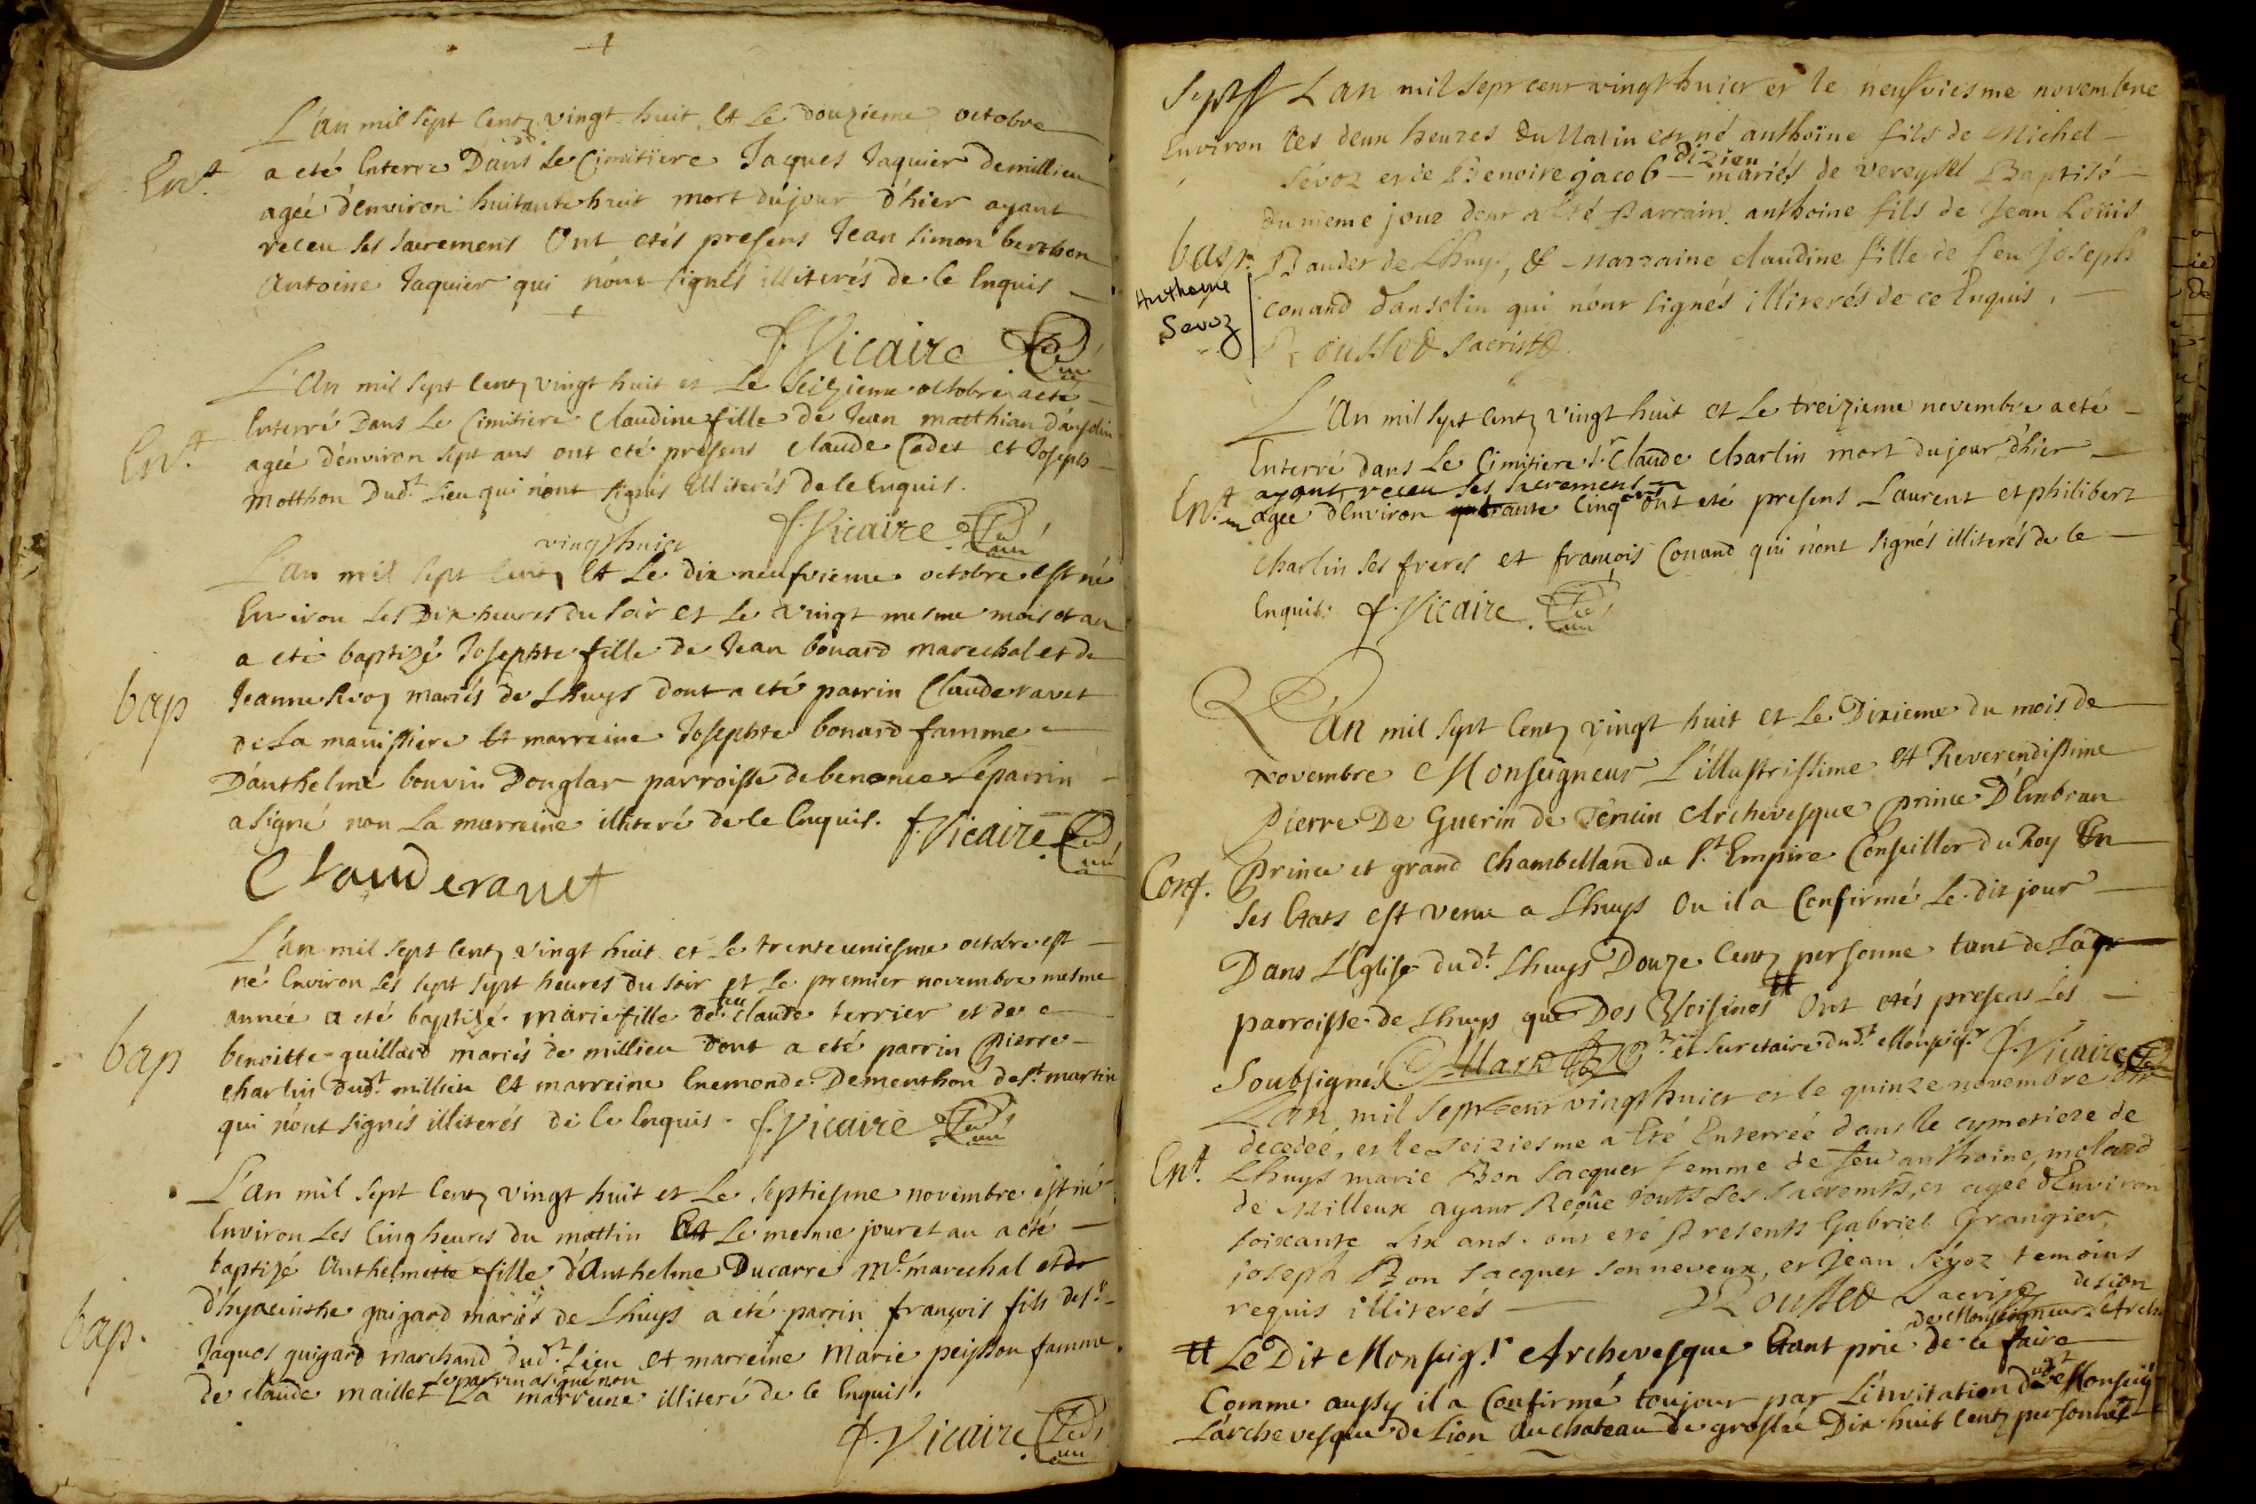 L'an mil sept Centz vingt huit et Le douzieme octobre
Ent a eté Enterre Dans Le Cimitiere Jaques Jaquier demillieu
ageé d'environ huitante huit mort dujour d'hier ayant
receu ses sacremens Ont etés presens Jean simon berthon
Antoine Jaquier qui n'ont signés illiterés de Ce Enquis
f. Vicaire Curé
L'an mil sept Centz vingt huit et Le seizieme octobre a eté
Enterré Dans Le Cimitiere Claudine fille de Jean matthian d'anselin
Ent ageé d'environ sept ans ont eté presens Claude Cadet et Joseph
Motthon Dud.t Lieu qui n'ont signés illiterés de Ce Enquis.
f. Vicaire Curé
vingthuict
L'an mil sept Centz et Le dix neufvieme octobre est né
Environ Les Dix heures du soir et Le vingt mesme mois et an
a eté baptizé Josephte fille de Jean bouard marechal et de
bap Jeanne sevoz mariés de Lhuys dont a eté parrin Claude ravet
de La et marreine Josephte bouard famme
D'anthelme bouvin Douglar parroisse de benonce Le parrin
a signé non La marreine illiteré de Ce Enquis. f. Vicaire Curé
Clauderavet
L'an mil sept Centz vingt huit et Le trenteuniesme octobre est
né Environ Les sept sept heures du soir et Le premier novembre mesme
année a eté baptizé marie fille de feu claude terrier et de
bap benoitte quillard mariés de millieu dont a eté parrin Pierre
charlin dud.t millieu et marreine Enemonde Dementhon de St. martin
qui n'ont signés illiterés de Ce Enquis. f. Vicaire Curé
L'an mil sept Centz vingt huit et Le septiesme novembre est né
Environ Les Cinq heures du mattin Et Le mesme jour et an a eté
baptizé Anthelmette fille d'Anthelme Ducarre m.e marechal et de
bap. d'hyacinthe guigard mariés de Lhuys a eté parrin françois fils de s.r
Jaques guigard marchand dud.t Lieu et marreine Marie peysson famme
le parrin a signé non
de claude maillet La marreine illiteré de Ce Enquis.
f. Vicaire Curé
Lan mil sept cent vingt huict et le neufviesme novembre
Environ les deux heures du Matin est né anthoine fils de Michel
dizieu
Sévoz et de Benoite jacob mariés de vereysel Baptisé
du meme jour dont a eté parrain anthoine fils de Jean Loüis
bap. Baudet de Lhuys, & Marraine claudine fille de feu Joseph
Anthoine Sevoz
conand danselin qui n'ont signés illiterés de ce Enquis.
Rousset Sacriste
L'An mil sept Centz vingt huit et Le treizieme novembre a eté
Enterré dans Le Cimitiere s.r Claude Charlin mort du jour d'hier
ayant receu ses sacremens
Ent ageé d'Environ Cinq ans ont eté presens Laurent et philibert
Charlin ses freres et françois Conand qui n'ont signés illiterés de Ce
Enquis. f. Vicaire Curé
L'an mil sept Centz vingt huit et Le Dixieme du mois de
novembre Monseigneur L'illustrissime et Reverendissime
Pierre De Guerin de Tencin Archevesque prince D'Embrun
Conf. Prince et grand Chambellan du St. Empire Conseiller du Roy En
ses Etats est venu a Lhuys Ou il a Confirmé Le dit jour
Dans L'Eglise dud.t Lhuys Douze Centz personne tant de La
parroisse de Lhuys que Des Voisines # Ont etés presens Les
Soubsignés et secretaire dud.t Monseig.r f. Vicaire Curé
Lan mil sept cent vingt huict et le quinze novembre est
decedée, et le seiziesme a Eté Enterrée dans le cymetiere de
Ent. Lhuys marie Bon Jacquet femme de feu anthoine molard
de Millieux ayant Reçûe touts Les Sacrements, et agée d'Environ
soixante six ans. ont eté presents Gabriel Grangier,
joseph Bon Jacquet son neveux, et Jean Sévoz temoins
requis illiterés Rousset Sacriste
de Monseigneur L'Arche de Lion
# Le Dit Monseig.r Archevesque Etant prié de ce faire
Comme aussy il a Confirmé toujour par L'invitation dud.t Monseig
L'archevesque de Lion Au chateau de groslée Dix huit Centz personnes